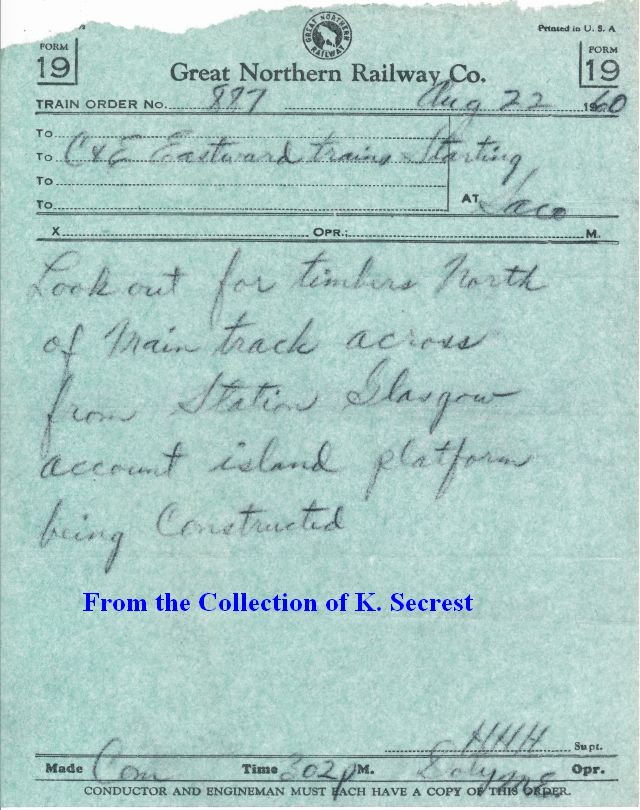 GREAT NORTHERN RAILWAY
Printed in U. S. A
FORM 19
FORM 19
Great Northern Railway Co.
TRAIN ORDER No. 887 Aug 22 1960
To
To C&E Eastward trains Starting
To
To AT Saco
X OPR.: M.
Look out for timbers North
of Main track across
from Station Glasgow
account island platform
being Constructed
From the Collection of K. Secrest
HHH Supt.
Made Com Time 302p M. Opr.
CONDUCTOR AND ENGINEMAN MUST EACH HAVE A COPY OF THIS ORDER.